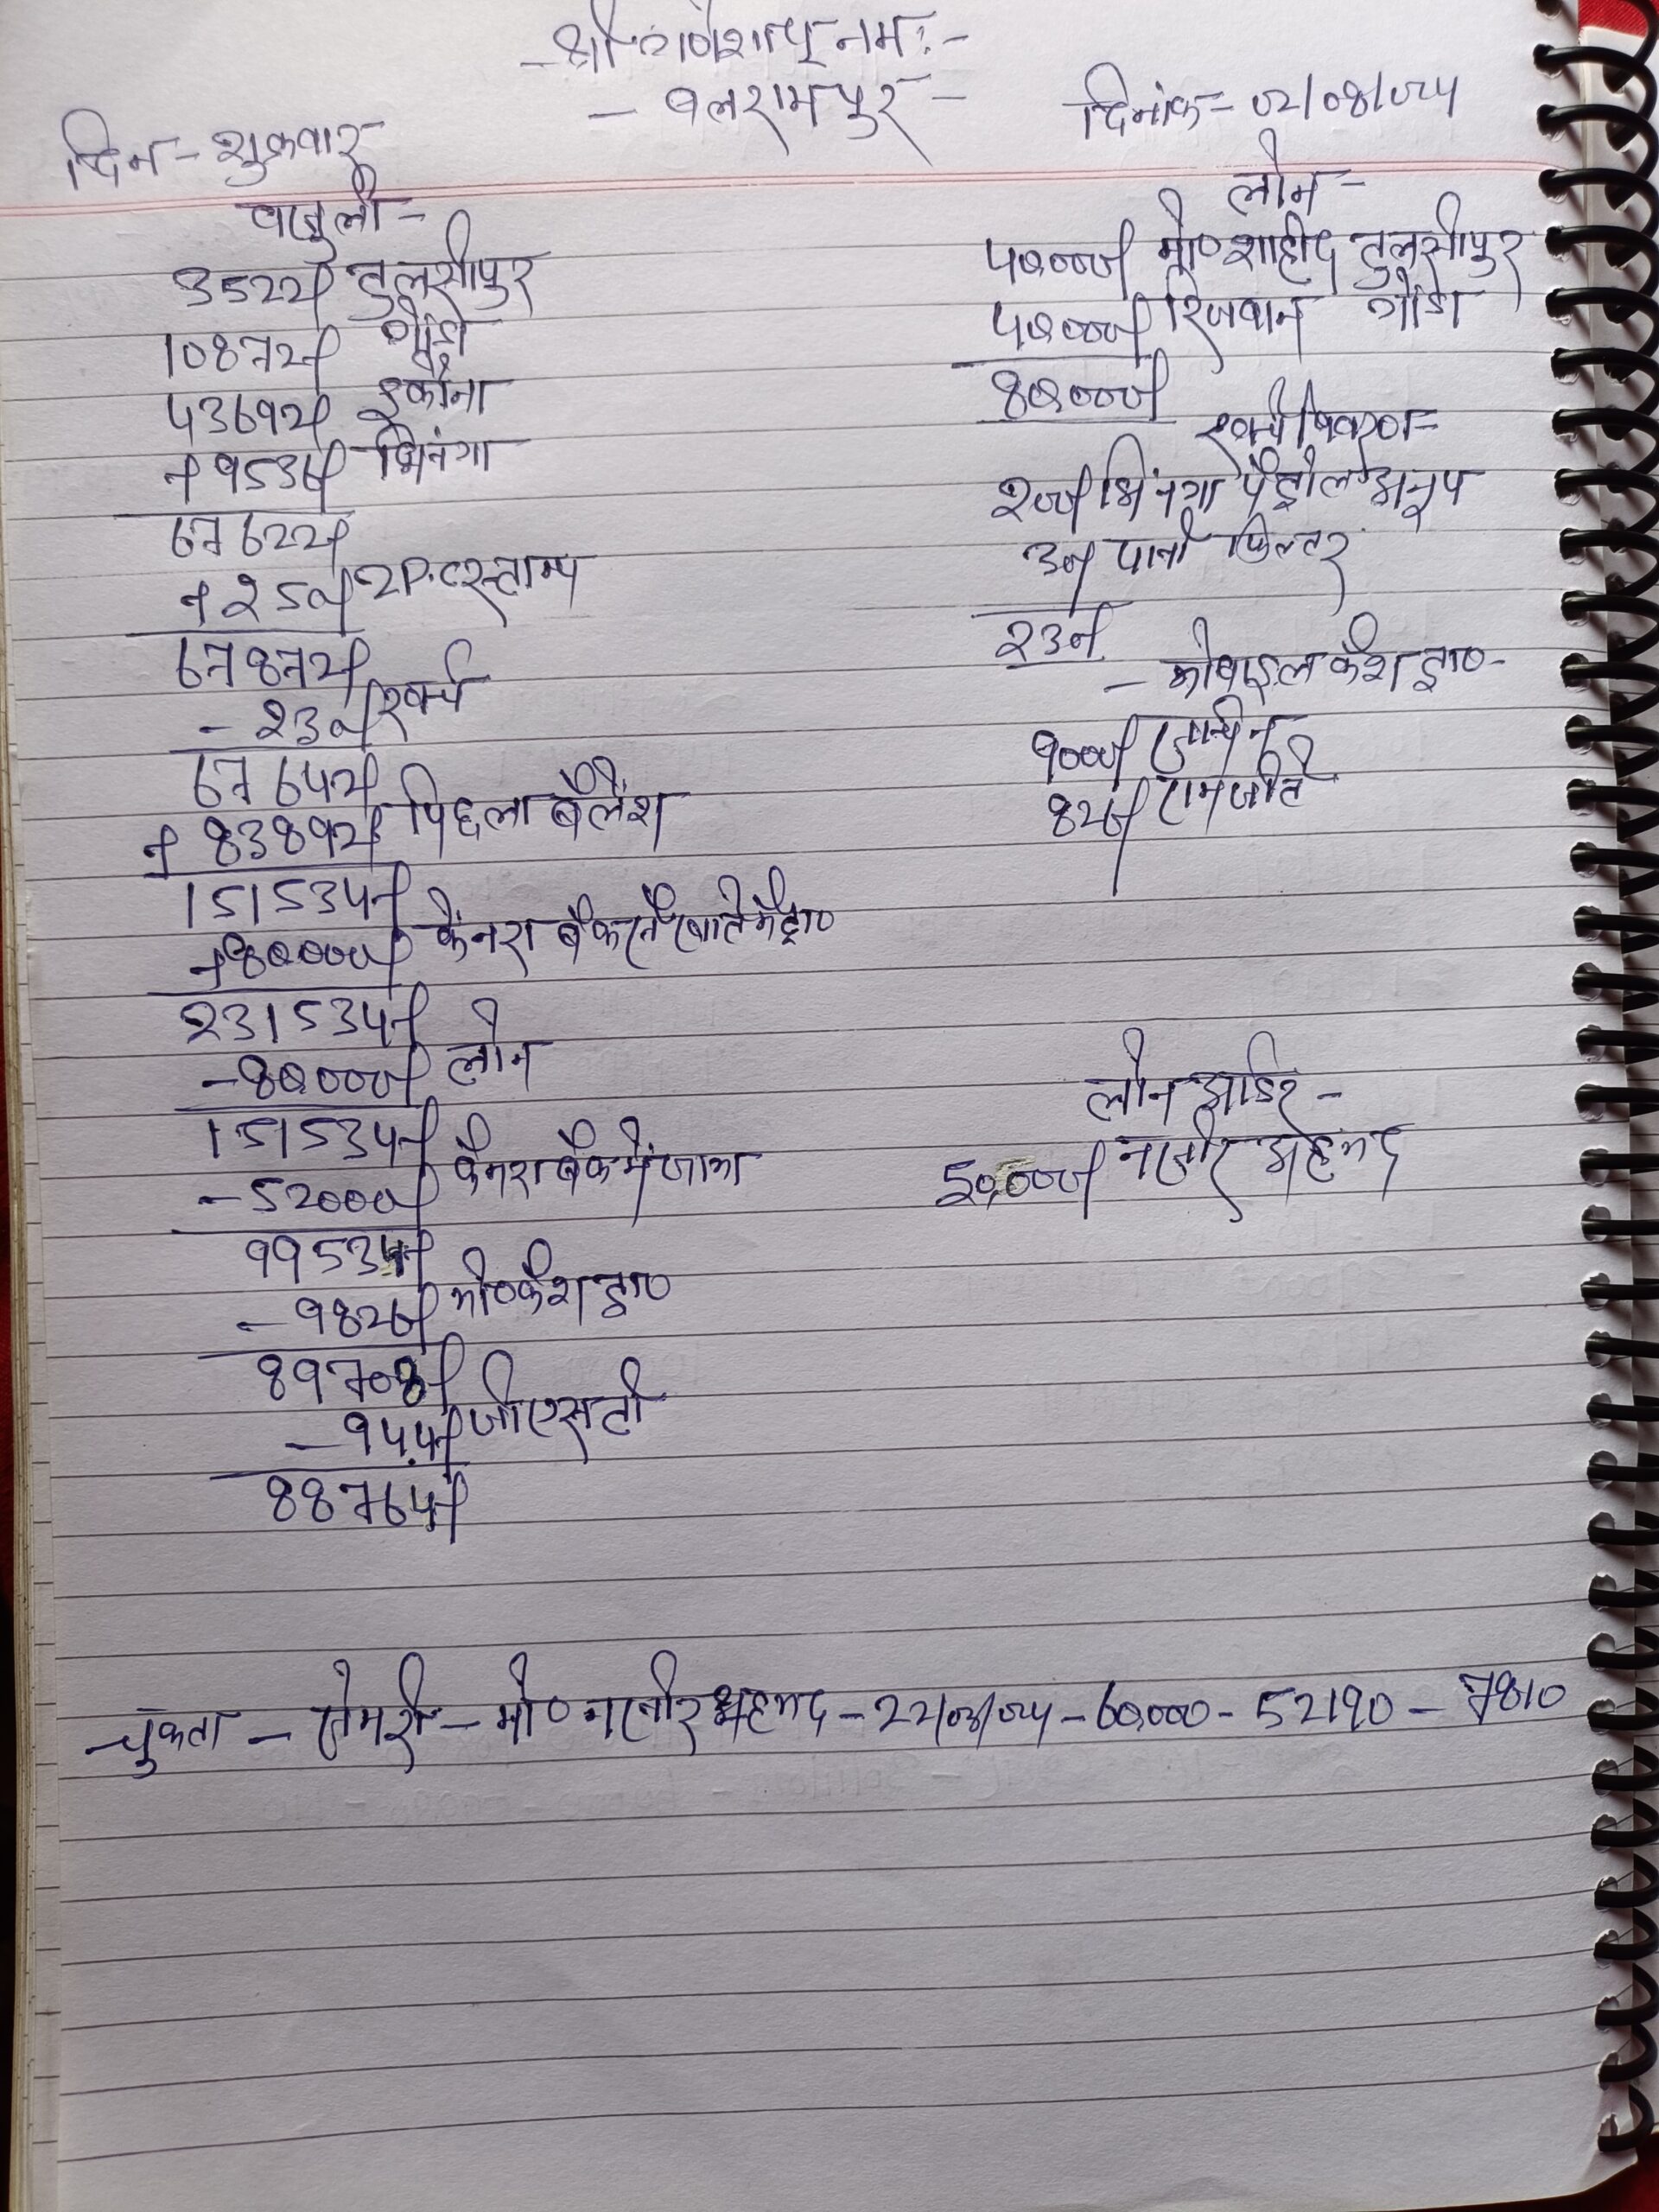 -श्री गणेशाय नमः-
- बलरामपुर -
दिन - शुक्रवार
दिनांक - 02/08/024
वसुली -
3522/ तुलसीपुर
10872/ गोंडा
43692/ इकौना
+ 9536/ भिनंगा
67622/
+ 250/ 2P.C स्टाम्प
67872/
- 230/ खर्च
67642/
+ 83892/ पिछला बैलेंश
151534/
+80000/ केनरा बैंक
231534/
- 80000/ लोन
151534/
- 52000/ कैनरा बैंक में जमा
99534/
- 9826/ मो० कैश ट्रा०
89708/
- 944/ जीएसटी
88764/
लोन -
40000/ मो० शाहीद तुलसीपुर
40000/ रिजवान गोंडा
80000/
खर्च विवरण -
200/ भिंनगा पेट्रोल अनूप
30/ पानी फिल्टर
230/
- मोबाइल कैश ट्रा०-
9000/
826/ रामजीत
लोन आर्डर -
50,000/ नजीर अहमद
चुकता - सेमरी - मो० नजीर अहमद - 22/03/024 - 60,000 - 52190 - 7810